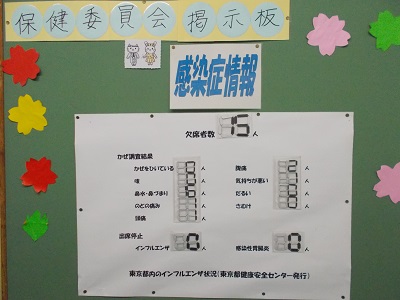 保健委員会 掲示板
感染症情報
欠席者数 15 人
かぜ調査結果
かぜをひいている 人 腹痛 2 人
咳 人 気持ちが悪い 人
鼻水・鼻づまり 6 人 だるい 人
のどの痛み 人 さむけ 人
頭痛 1 人
出席停止
インフルエンザ 0 人 感染性胃腸炎 0 人
東京都内のインフルエンザ状況(東京都健康安全センター発行)